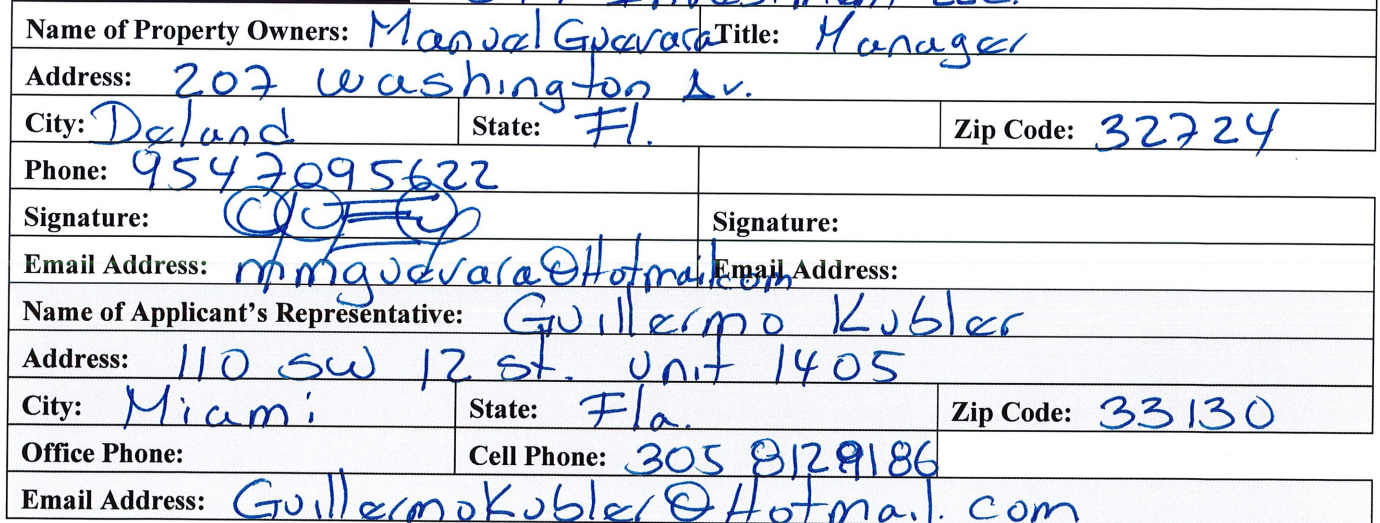 Investment LLC.
Name of Property Owners: Manuel Guevara Title: Manager
Address: 207 Washington Av.
City: Deland State: Fl. Zip Code: 32724
Phone: 9547095622
Signature: Signature:
Email Address: mmguevara@Hotmail.com Email Address:
Name of Applicant's Representative: Guillermo Kubler
Address: 110 SW 12 st. Unit 1405
City: Miami State: Fla. Zip Code: 33130
Office Phone: Cell Phone: 305 8129186
Email Address: GuillermoKubler@Hotmail.com